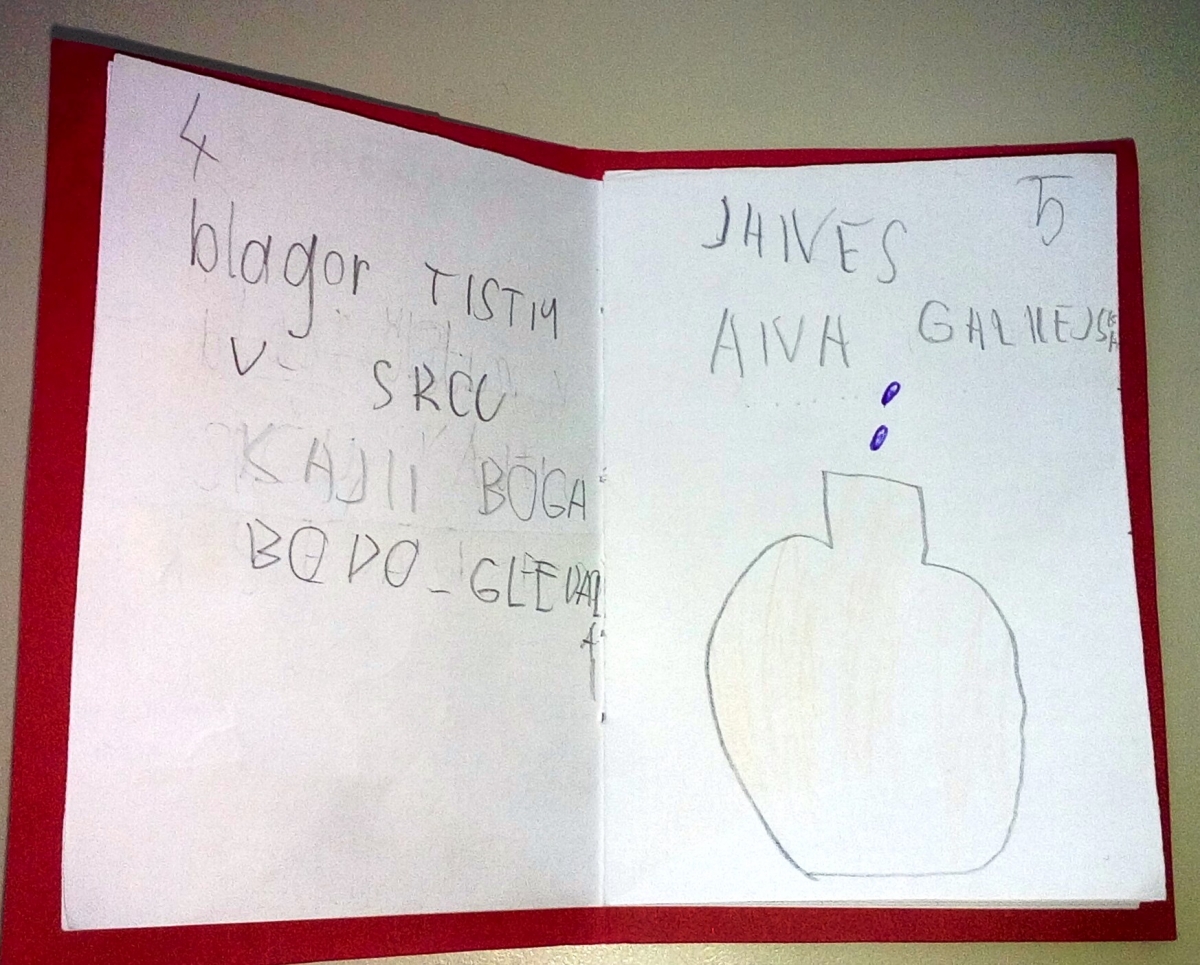 4
blagor TISTIM
V SRCU
KAJTI BOGA
BODO GLEDALI
5
JANES
ANA GALILEJSKA